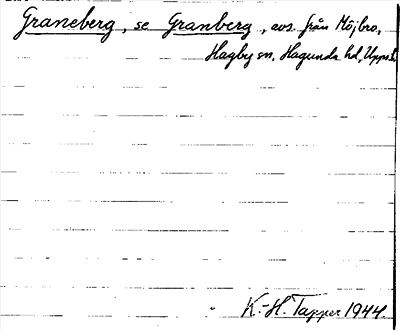 Graneberg, se Granberg, avs. från Möjbro,
Hagby sn, Hagunda hd, Upps.l.
K.-H. Tapper 1944